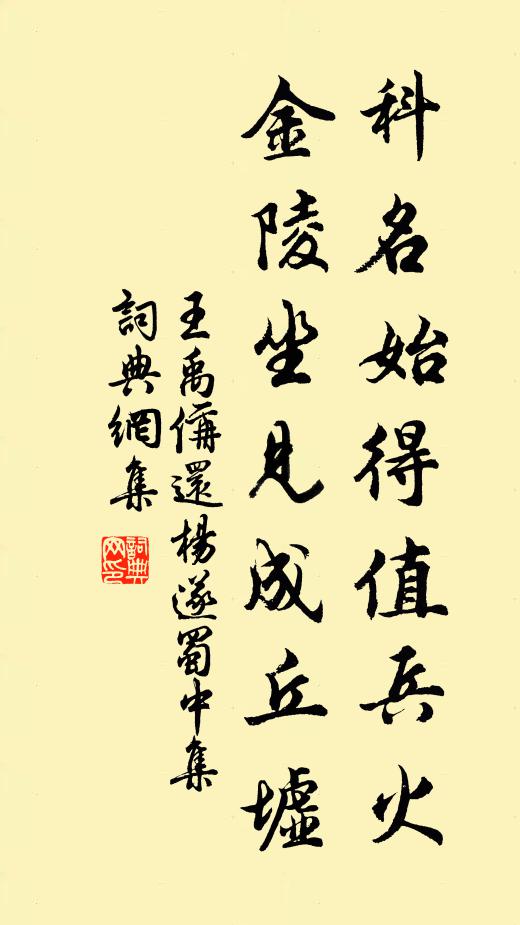 科名始得值兵火
金陵坐見成丘墟
王禹偁還楊遂蜀中集
詞典網集
詞典網印